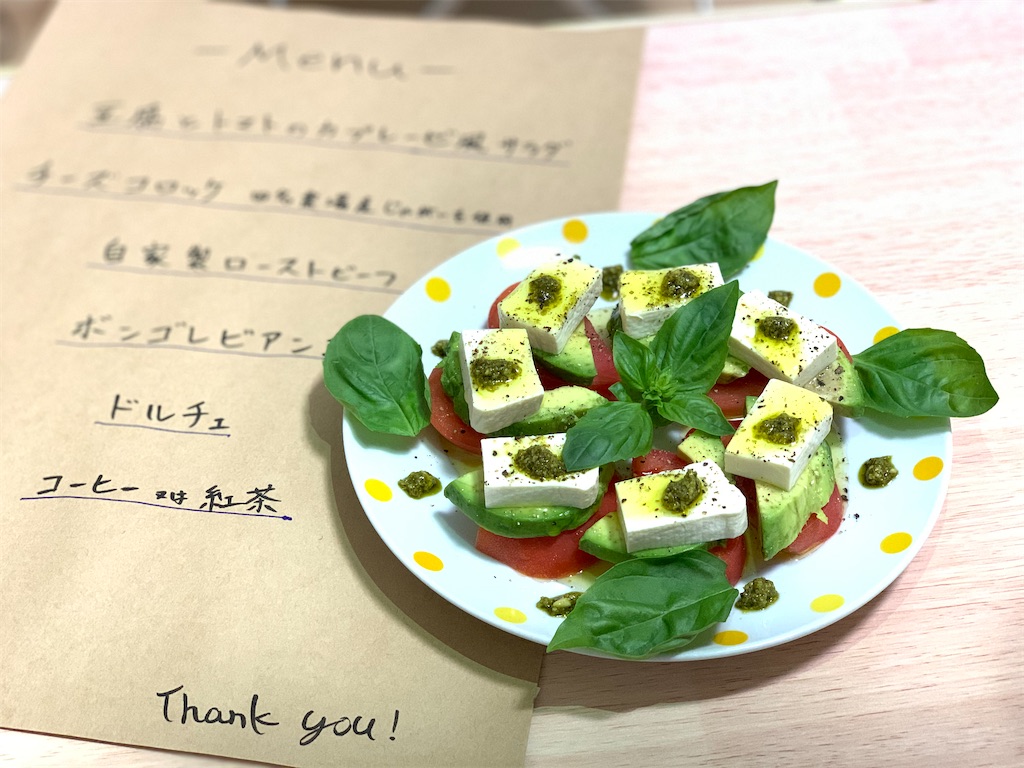 －Menu－
豆腐とトマトのカプレーゼ風サラダ
チーズコロッケ
自家製ローストビーフ
ボンゴレビアン
ドルチェ
コーヒー 又は 紅茶
Thank you!